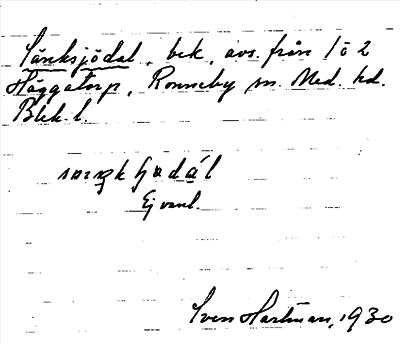 Sänksjödal, bek. avs. från 1 o 2
Häggatorp, Ronneby sn. Med. hd.
Blek. l.
Ej vanl.
Sven Hartman, 1930